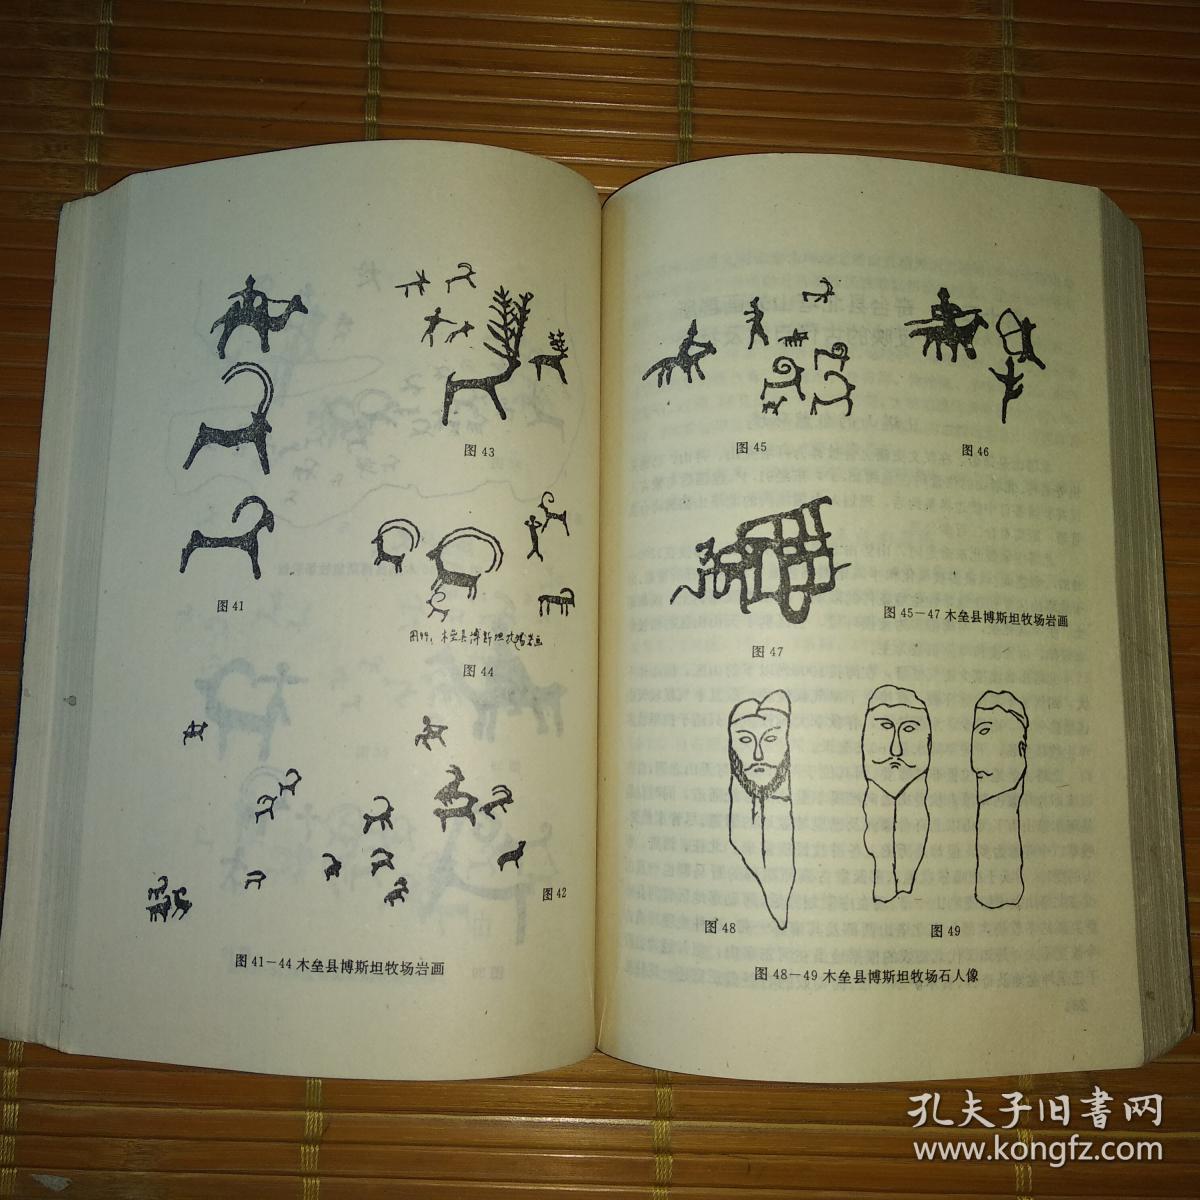 图43
图41
图44，木垒县博斯坦牧场岩画
图44
图42
图41—44 木垒县博斯坦牧场岩画
图45
图46
图47
图45—47 木垒县博斯坦牧场岩画
图48
图49
图48—49 木垒县博斯坦牧场石人像
孔夫子旧书网
www.kongfz.com